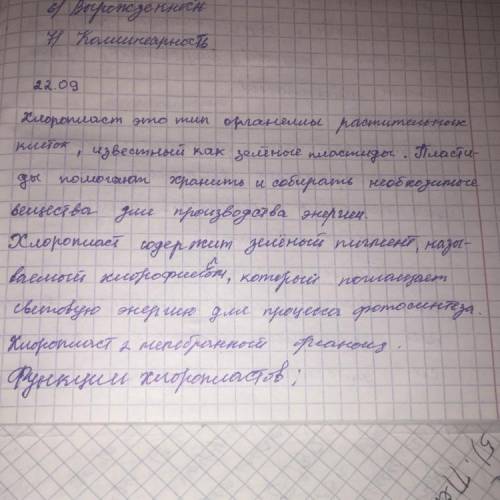 6) Вырожденный
7) Коллинеарность.
22.09
Хлоропласт это тип органеллы растительных
клеток, известный как зелёные пластиды. Пласти-
ды помогают хранить и собирать необходимые
вещества для производства энергии.
Хлоропласт содержит зелёный пигмент, назы-
ваемый хлорофиллом, который поглощает
световую энергию для процесса фотосинтеза.
Хлоропласт 2 мембранный органоид.
Функции хлоропластов;
5)